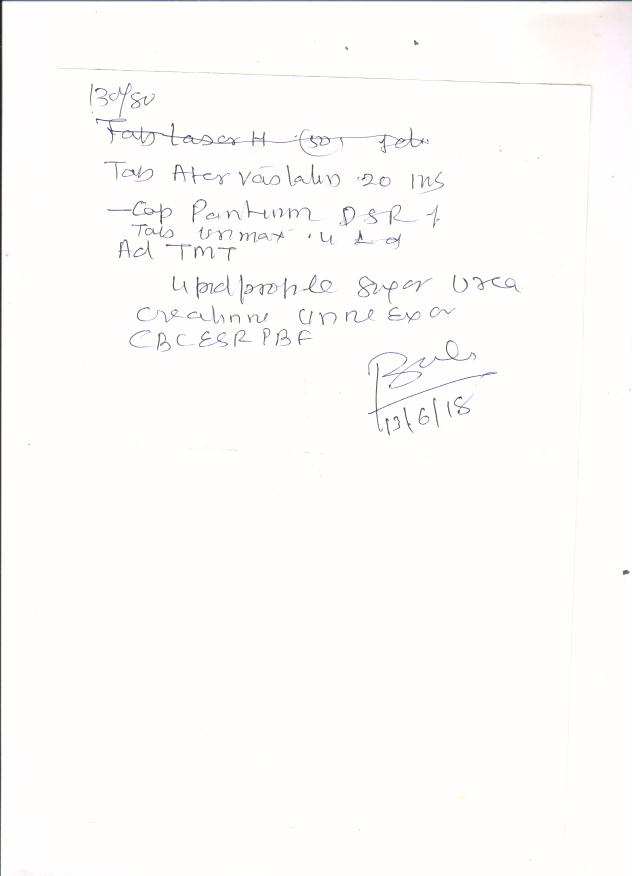 130/80
Tab Laser H (50)
Tab Atorvastatin 20 mg
Cap Pantium DSR 1
Tab Urimax .4 1 d
Ad TMT
Lipid profile Sugar Urea
Creatinine Urine Exam
CBC ESR PBF
13/6/18